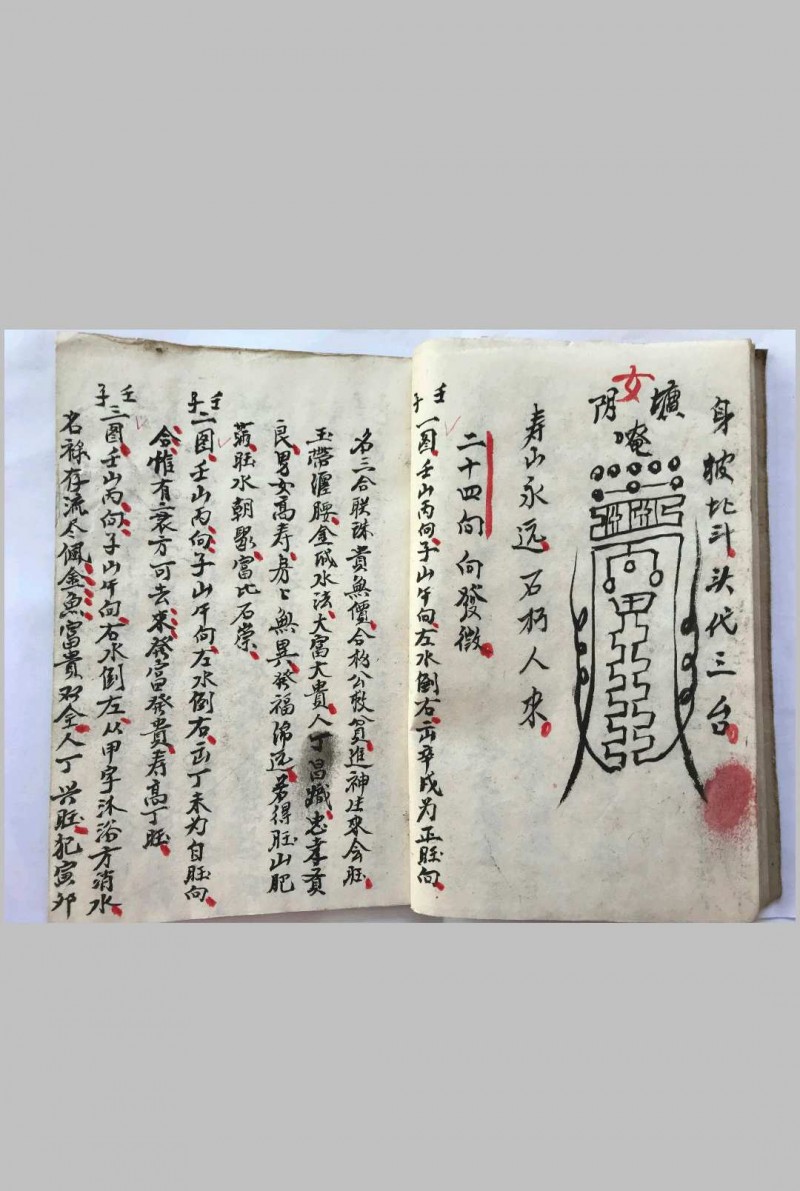 身披北斗头代三台
壙
女
阴
唵
寿山永远石朽人來
二十四向向發微
壬子
一图壬山丙向子山午向左水倒右出辛戌为正旺向
名三合联珠貴無價合楊公救貧進神生來会旺
玉帶纏腰金城水法大富大貴人丁昌熾忠孝賢
良男女高寿房々無異發福綿远若得旺山肥
满旺水朝聚富比石崇
壬子
二图壬山丙向子山午向左水倒右出丁未为自旺向
合惟有衰方可去來發富發貴寿高丁旺
壬子
三图壬山丙向子山午向右水倒左从甲字沐浴方消水
名禄存流尽佩金魚富貴双全人丁兴旺犯寅卯